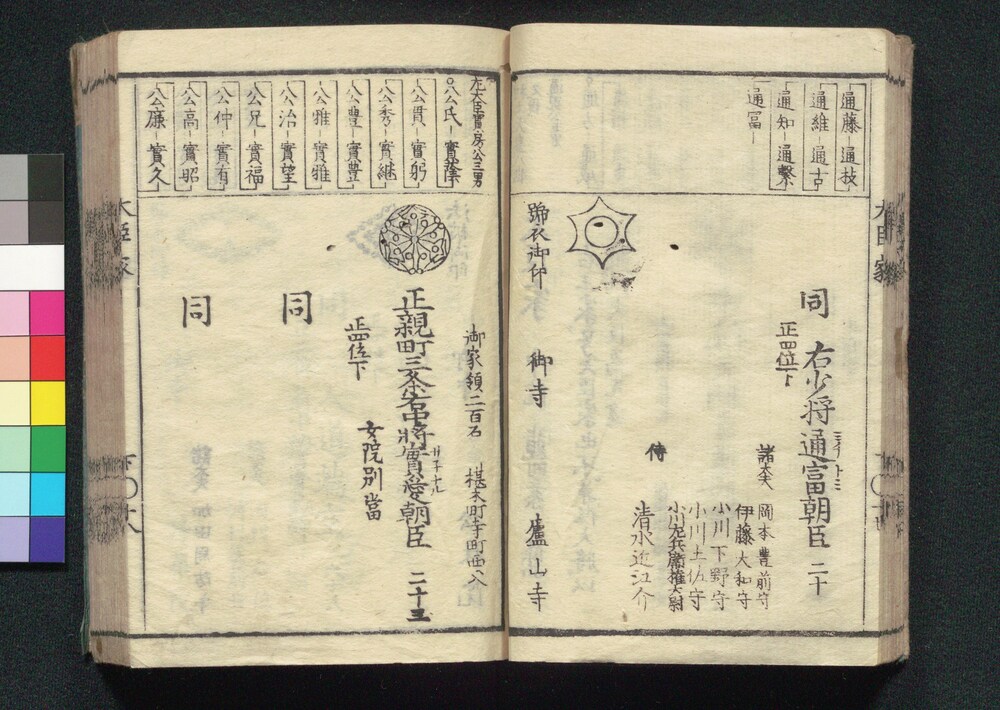 通藤 通枝
通維 通古
通知 通繋
通冨
同 右少将通富朝臣 二十
ミチトミ
正四位下
諸大夫 岡本豊前守
伊藤大和守
小川下野守
小川土佐守
小川左兵衛権大尉
侍 清水近江介
御寺 廬山寺
大臣家
左大臣實房公三男
公氏 實蔭
公貫 實躬
公秀 實継
公豊 實豊
公雅 實雅
公治 實望
公兄 實福
公仲 實有
公高 實昭
公廉 實久
御家領二百石 椹木町寺町西へ入
正親町三条右中将實愛朝臣 二十三
サネナル
正四位下
女院別當
同
同
大臣家